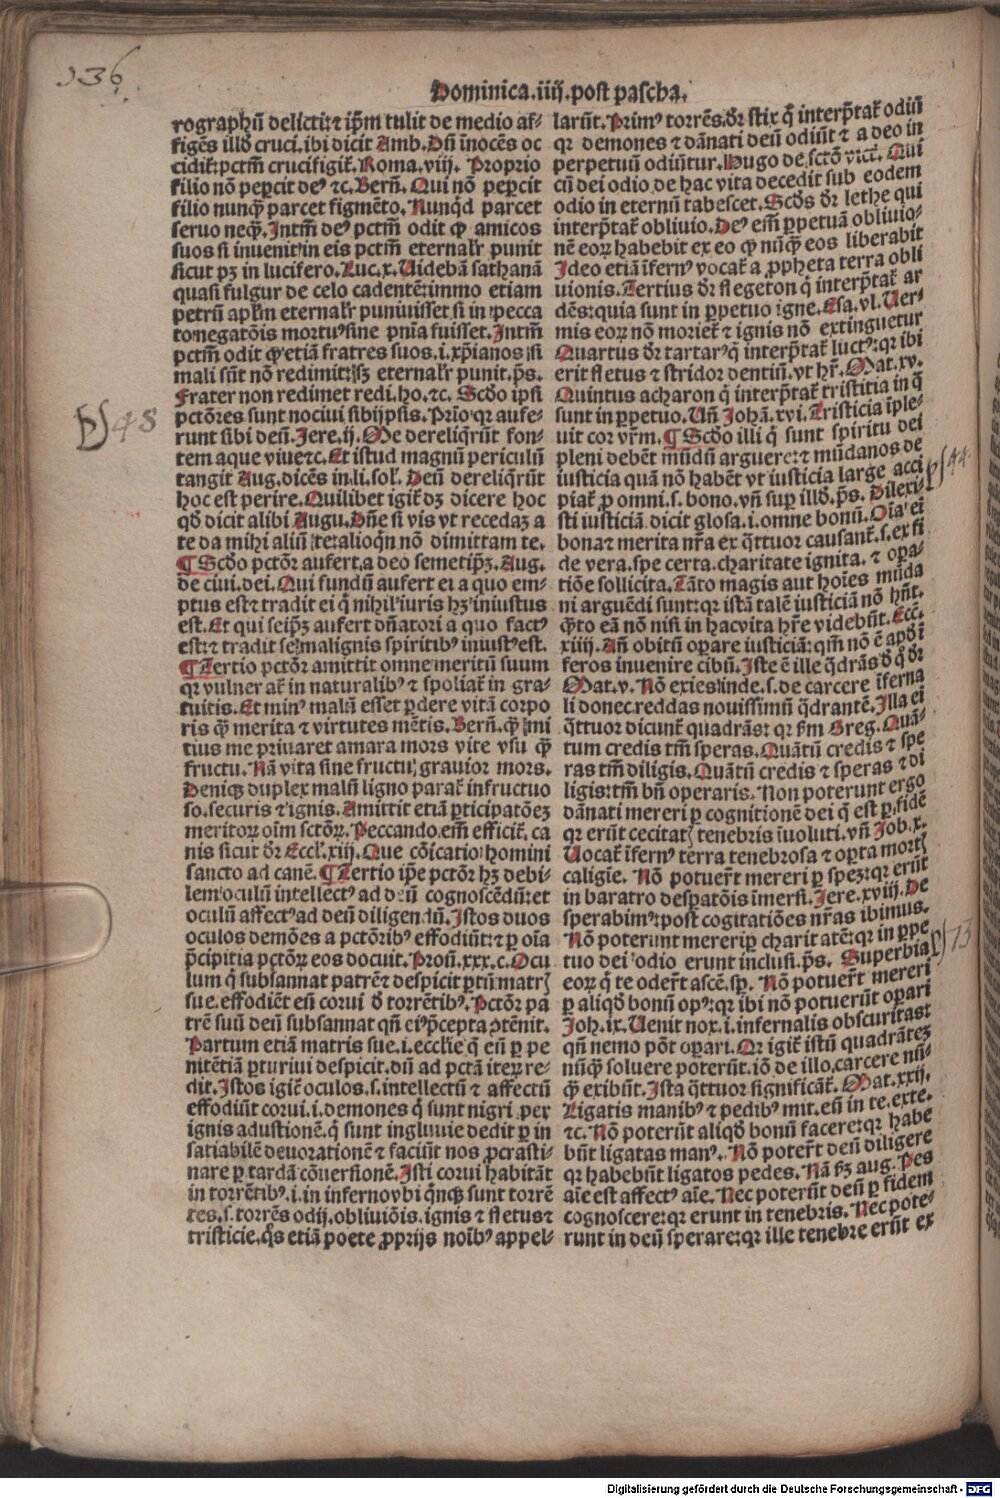 136
Dominica.iiij.post pascha.
rographũ delicti:⁊ ip̃m tulit de medio af-
figẽs illd̓ cruci.ibi dicit Amb.Dñ inocẽs oc
cidit̃:pctm̃ crucifigit̃.Roma.viij. Proprio
filio nõ peꝑcit deꝰ ⁊c.Bern̄.Qui nõ peꝑcit
filio nunqͣ̃ parcet figmẽto.Nunqͥd parcet
seruo neqͣ̃.Intm̃ deꝰ pctm̃ odit ꝙ amicos
suos si inuenit in eis pctm̃ eternal̓r punit
sicut pꝫ in lucifero.Luc.x.Uidebã sathanã
quasi fulgur de celo cadentẽ:immo etiam
petrũ apl̓m eternal̓r puniuisset si in pecca
to negatõis mortuꝰ sine pn̄ia fuisset.Intm̃
pctm̃ odit ꝙ etiã fratres suos.i.xp̃ianos si
mali sũt nõ redimit:sꝫ eternal̓r punit.p̃s.
Frater non redimet redi.ho.⁊c. Scd̓o ipsi
pctõres sunt nociui sibijpsis. Prĩo qꝛ aufe-
ps 48
runt sibi deũ.Jere.ij.Me dereliqͥrũt fon-
tem aque viue ⁊c.Et istud magnũ periculũ
tangit Aug.dicẽs in li.sol̓. Deũ dereliqͥrũt
hoc est perire.Quilibet igit̃ dꝫ dicere hoc
qd̓ dicit alibi Augu.Dñe si vis vt recedaꝫ a
te da mihi aliũ te:alioqͥn nõ dimittam te.
¶ Scd̓o pctõr aufert.a deo semetip̃ꝫ.Aug.
de ciui.dei.Qui fundũ aufert ei a quo em-
ptus est ⁊ tradit ei qͥ nihil iuris hꝫ iniustus
est.Et qui seip̃ꝫ aufert dñatori a quo factꝰ
est:⁊ tradit se malignis spiritibꝰ iniustꝰ est.
¶ Tertio pctõr amittit omne meritũ suum
qꝛ vulnerat̃ in naturalibꝰ ⁊ spoliat̃ in gra-
tuitis.Et minꝰ malũ esset ꝑdere vitã corpo
ris qͣ̃ merita ⁊ virtutes mẽtis.Bern̄.ꝙ mi
tius me priuaret amara mors vite vsu qͣ̃
fructu.Nã vita sine fructu grauior mors.
Deniqꝫ duplex malũ ligno parat̃ infructuo
so.securis ⁊ ignis.Amittit etiã ꝑticipatõeꝫ
meritoꝝ oĩm sctõꝝ.Peccando.em̃ efficit̃.ca
nis sicut dr̃ Eccl̓.xiij.Que cõicatio homini
sancto ad canẽ.¶ Tertio ip̃e pctõr hꝫ debi-
lem oculũ intellectꝰ ad deũ cognoscẽdũ:et
oculũ affectꝰ ad deũ diligendũ.Istos duos
oculos demões a pctõribꝰ effodiũt:⁊ ꝑ oĩa
p̃cipitia pctõꝝ eos docuit.Prou̓.xxx.c.Ocu
lum qͥ subsannat patrẽ ⁊ despicit ꝑtũ matrꝭ
sue.effodiẽt eũ corui d̓ torrẽtibꝰ.Pctõr pa
trẽ suũ deũ subsannat qñ eiꝰ p̃cepta ꝯtẽnit.
Partum etiã matris sue.i.eccl̓ie qͥ eũ ꝑ pe
nitẽtiã ꝑturiui despicit.dũ ad pctã iteꝝ re-
dit.Istos igit̃ oculos.s.intellectũ ⁊ affectũ
effodiũt corui.i.demones qͥ sunt nigri per
ignis adustionẽ.qͥ sunt ingluuie dedit ꝑ in
satiabilẽ deuorationẽ ⁊ faciũt nos ꝓcrasti-
nare ꝑ tardã cõuersionẽ.Isti corui habitãt
in torrẽtibꝰ.i.in inferno vbi qͥnqꝫ sunt torrẽ
tes.s.torrẽs odij.obliuiõis.ignis ⁊ fletus ⁊
tristicie.qͦs etiã poete ꝓprijs noĩbꝰ appel-
larũt.Primꝰ torrẽs.dr̃ stix qͥ interp̃tat̃ odiũ
qꝛ demones ⁊ dãnati deũ odiũt ⁊ a deo in
perpetuũ odiũtur.Hugo de sctõ vict̃. Qui
cũ dei odio de hac vita decedit sub eodem
odio in eternũ tabescet.Scd̓s dr̃ lethe qui
interp̃tat̃ obliuio.Deꝰ em̃ ꝑpetuã obliuio-
nẽ eoꝝ habebit ex eo ꝙ nũqͣ̃ eos liberabit
Ideo etiã ĩfernꝰ vocat̃ a ꝓpheta terra obli
uionis.Tertius dr̃ flegeton qͥ interp̃tat̃ ar
dẽs:quia sunt in ꝑpetuo igne.Esa.vl.Uer-
mis eoꝝ nõ moriet̃ ⁊ ignis nõ extinguetur
Quartus dr̃ tartarꝰ qͥ interp̃tat̃ luctꝰ:qꝛ ibi
erit fletus ⁊ stridor dentiũ.vt hr̃. Mat.xv.
Quintus acharon qͥ interp̃tat̃ tristitia in qͣ
sunt in ꝑpetuo.Uñ Johã.xvi.Tristicia iple-
uit cor vr̃m.¶ Scd̓o illi qͥ sunt spiritu dei
pleni debẽt mũdũ arguere:⁊ mũdanos de
ps 44.
iusticia quã nõ habẽt vt iusticia large acci
piat̃ ꝓ omni.s.bono.vñ suꝑ illd̓.p̃s. Dilexi-
sti iusticiã.dicit glosa.i.omne bonũ.Oĩa ei
bona ⁊ merita nr̃a ex qͣttuor causant̃.s.ex fi
de vera.spe certa.charitate ignita. ⁊ oꝑa-
tiõe sollicita.Tãto magis aut hoĩes mũda
ni arguẽdi sunt:qꝛ istã talẽ iusticiã nõ hñt.
qͣ̃to eã nõ nisi in hac vita hr̃e videbũt.Ecc̃.
xiiij.Añ obitũ oꝑare iusticiã:qm̃ nõ ẽ apd̓ ĩ
feros inuenire cibũ.Iste ẽ ille qͣdrãs d̓ qͦ dr̃
Mat.v. Nõ exies inde.s.de carcere ĩferna
li donec reddas nouissimũ qͣdrantẽ.Illa ei
qͣttuor dicunt̃ quadrãs: qꝛ ẜm Greg.Quã-
tum credis tm̃ speras.Quãtũ credis ⁊ spe
ras tm̃ diligis.Quãtũ credis ⁊ speras ⁊ di
ligis:tm̃ bñ operaris. Non poterunt ergo
dãnati mereri ꝑ cognitionẽ dei qͥ est ꝑ.fidẽ
qꝛ erũt cecitatꝭ tenebris ĩuoluti.vñ Job.x.
Uocat̃ ĩfernꝰ terra tenebrosa ⁊ oꝑta mortꝭ
caligĩe. Nõ potuer̃t mereri ꝑ speꝫ:qꝛ erũt
in baratro desꝑatõis ĩmersi.Jere.xviij.De
sperabimꝰ:post cogitatiões nr̃as ibimus.
Nõ poterunt mereri ꝑ charitatẽ:qꝛ in ꝑpe
ps 73
tuo dei odio erunt inclusi.p̃s. Superbia
eoꝝ qͥ te oder̃t ascẽ.sp̃. Nõ potuer̃t mereri
ꝑ aliqd̓ bonũ opꝰ:qꝛ ibi nõ potuerũt oꝑari
Joh.ix.Uenit nox.i.infernalis obscuritas:
qñ nemo põt oꝑari.Qꝛ igit̃ istũ quadrãteꝫ
nũqͣ̃ soluere poterũt.iõ de illo carcere nũ-
qͣ̃ exibũt.Ista qͣttuor significãt̃. Mat.xxij.
Ligatis manibꝰ ⁊ pedibꝰ mit.eũ in te.exte.
⁊c. Nõ poterũt aliqd̓ bonũ facere:qꝛ habe
bũt ligatas manꝰ. Nõ poter̃t deũ diligere
qꝛ habebũt ligatos pedes. Nã ẜꝫ aug. Pes
aĩe est affectꝰ aĩe. Nec poterũt deũ ꝑ fidem
cognoscere:qꝛ erunt in tenebris. Nec pote-
runt in deũ sperare:qꝛ ille tenebre erũt ex
Digitalisierung gefördert durch die Deutsche Forschungsgemeinschaft - DFG